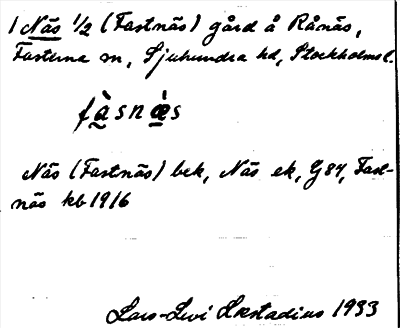 1 Näs 1/2 (Fastnäs) gård å Rånäs,
Fasterna sn, Sjuhundra hd, Stockholms l.
fà̰snæ̰̀s
Näs (Fastnäs) bek, Näs ek, G84, Fast-
näs kb 1916
Lars-Levi Læstadius 1933